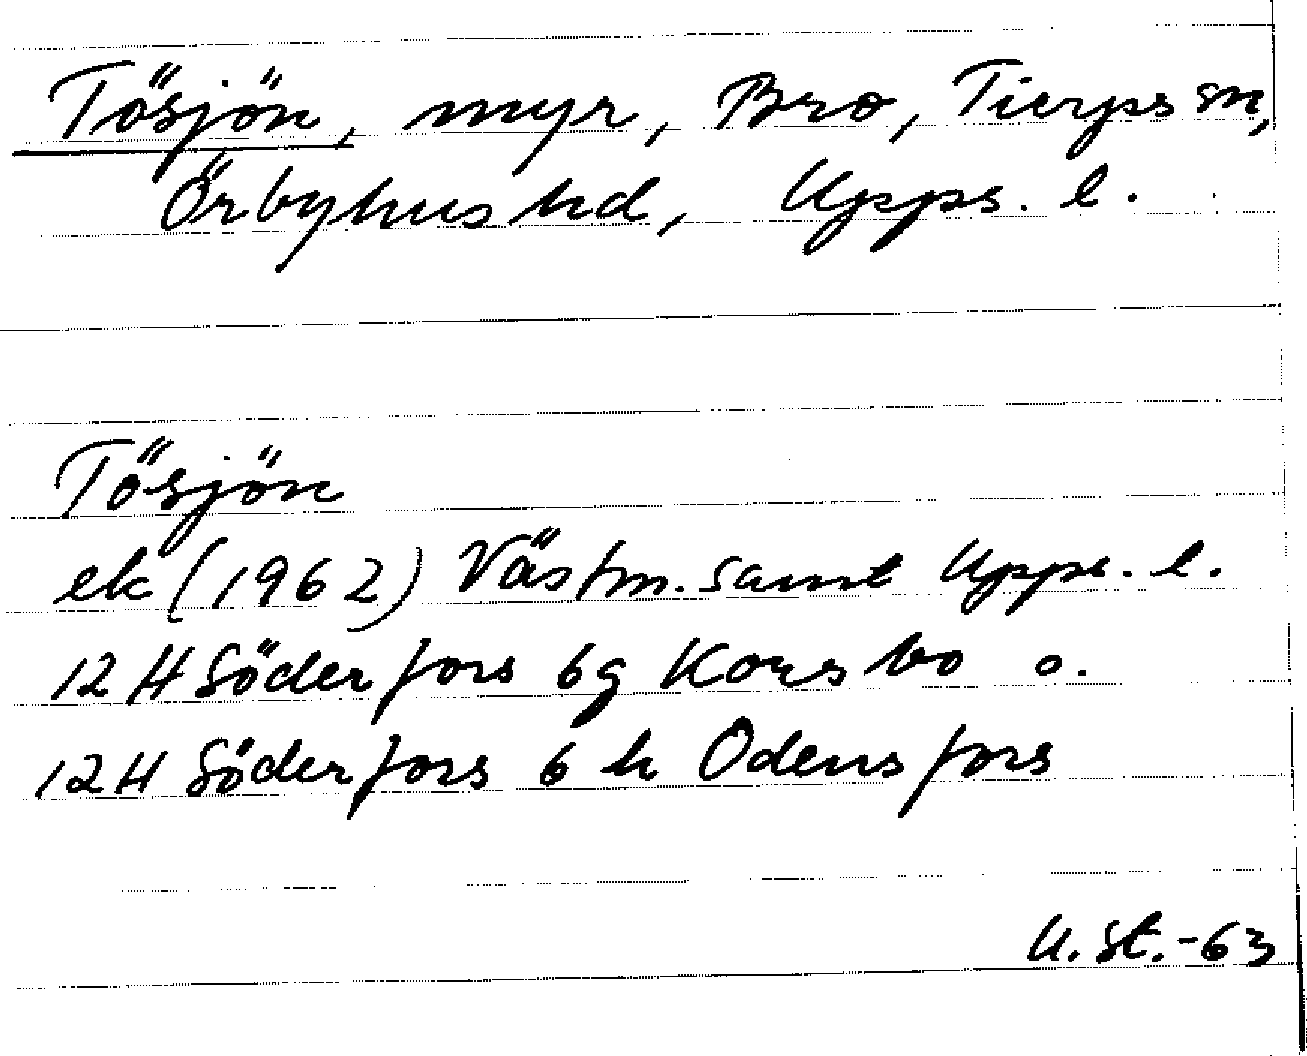 Tösjön, myr, Bro, Tierps sn,
Örbyhus hd, Upps. l.
Tösjön
ek (1962) Västm. samt Upps. l.
12 H Söderfors 6g Korsbo o.
12 H Söderfors 6 h Odensfors
U. St. -63